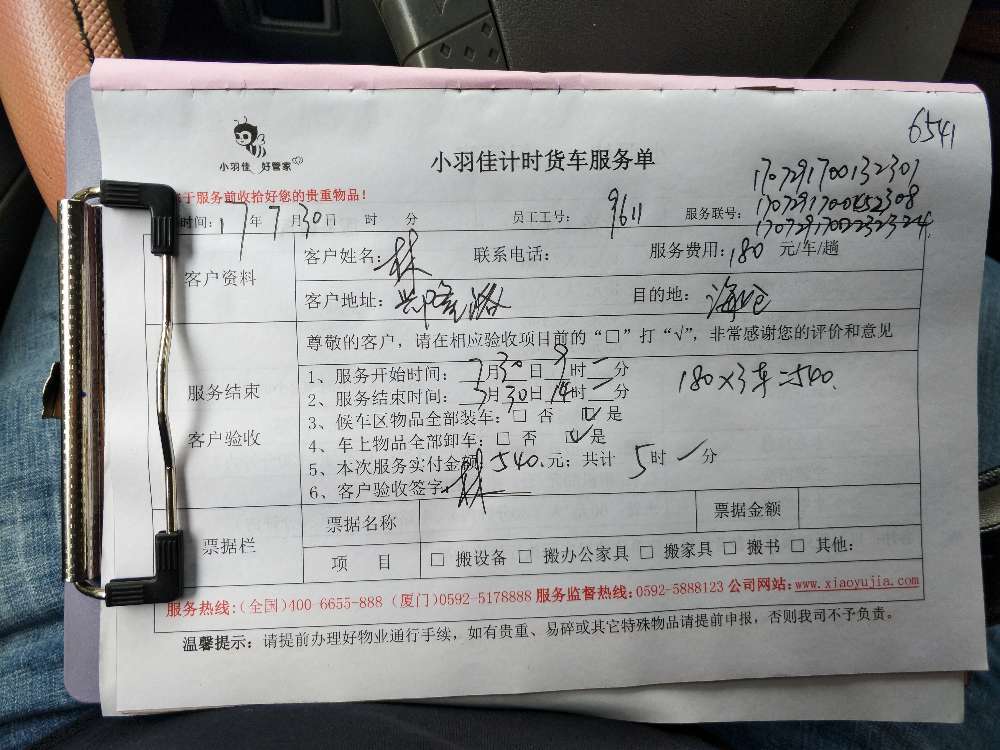 6541
小羽佳 好管家
小羽佳计时货车服务单
1707291700132301
于服务前收拾好您的贵重物品!
时间: 17年 7月30日 时 分 员工工号: 9611 服务联号:
客户资料 客户姓名: 林 联系电话: 服务费用: 180 元/车/趟
客户地址: 兴隆路 目的地: 海沧
尊敬的客户, 请在相应验收项目前的“□”打“√”, 非常感谢您的评价和意见
服务结束
客户验收
1、服务开始时间: 7月30日9时一分
2、服务结束时间: 月30日14时一分
180×3车=540.
3、候车区物品全部装车: □ 否 ☑ 是
4、车上物品全部卸车: □ 否 ☑ 是
5、本次服务实付金额: 540.元; 共计 5时一分
6、客户验收签字: 林
票据栏 票据名称 票据金额
项 目 □ 搬设备 □ 搬办公家具 □ 搬家具 □ 搬书 □ 其他:
服务热线:(全国)400-6655-888 (厦门)0592-5178888 服务监督热线:0592-5888123 公司网站: www.xiaoyujia.com
温馨提示: 请提前办理好物业通行手续, 如有贵重、易碎或其它特殊物品请提前申报, 否则我司不予负责。